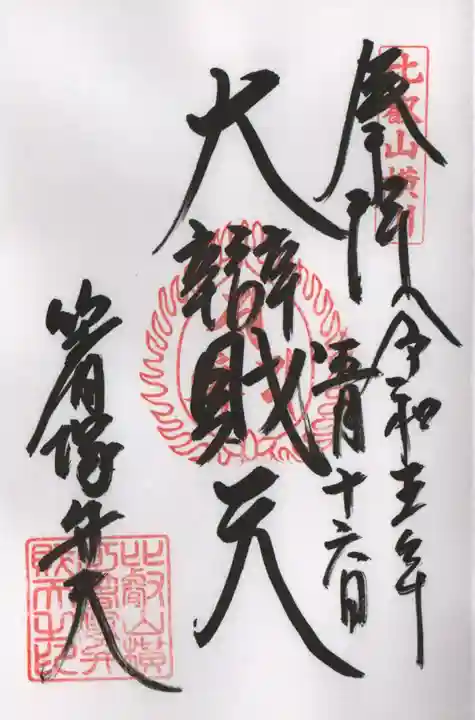 比叡山横川
奉拝
令和五年
五月十六日
大辯財天
箸塚弁天
比叡山横
川箸塚弁
財天之印